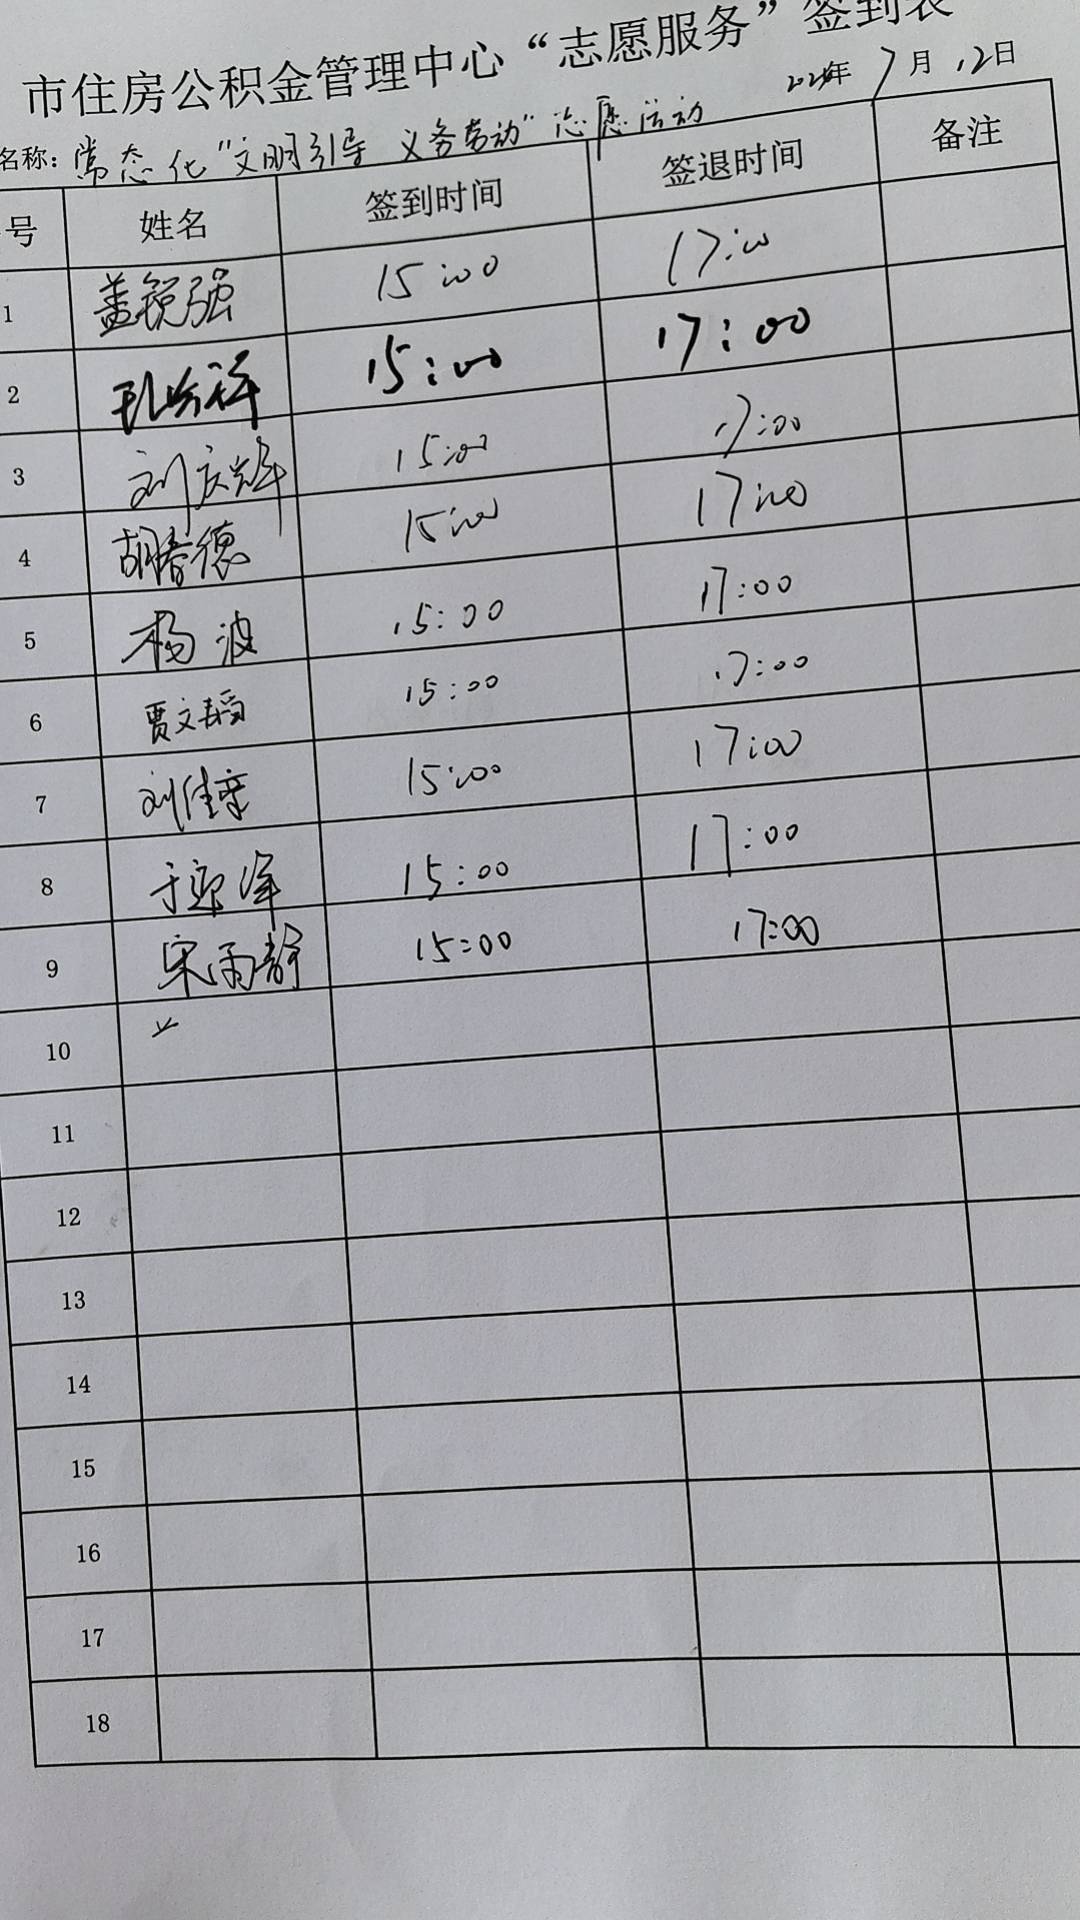 市住房公积金管理中心“志愿服务”签到表
2024年 7月 12日
名称：常态化“文明引导 义务劳动”志愿活动
号 姓名 签到时间 签退时间 备注
1 盖锐强 15:00 17:00
2 15:00 17:00
3 刘庆辉 15:00 17:00
4 胡春德 15:00 17:00
5 杨波 15:00 17:00
6 贾文韬 15:00 17:00
7 刘佳 15:00 17:00
8 于 15:00 17:00
9 宋雨静 15:00 17:00
10
11
12
13
14
15
16
17
18